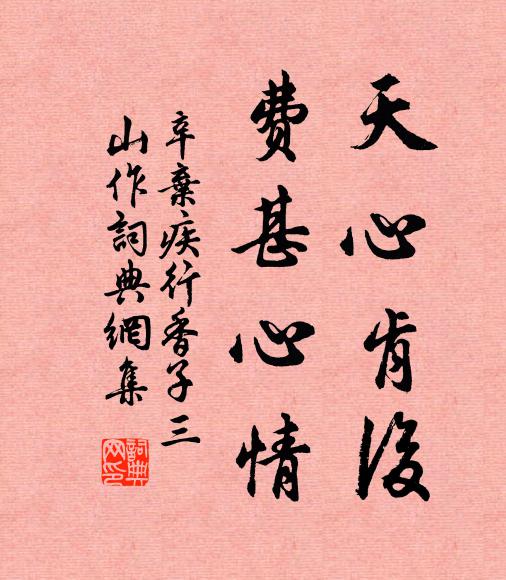 天心肯後
費甚心情
辛棄疾行香子三
山作詞典網集
詞典網印